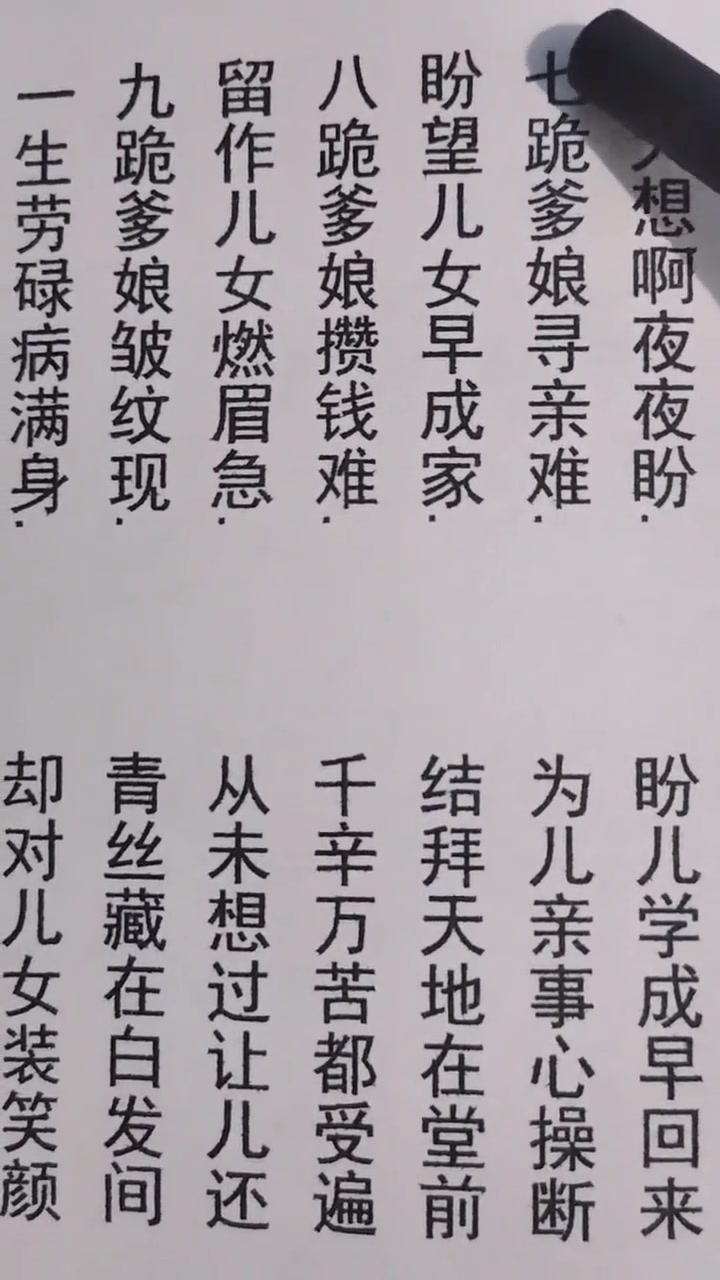 想啊夜夜盼.
盼儿学成早回来
七跪爹娘寻亲难.
为儿亲事心操断
盼望儿女早成家.
结拜天地在堂前
八跪爹娘攒钱难.
千辛万苦都受遍
留作儿女燃眉急.
从未想过让儿还
九跪爹娘皱纹现.
青丝藏在白发间
一生劳碌病满身.
却对儿女装笑颜